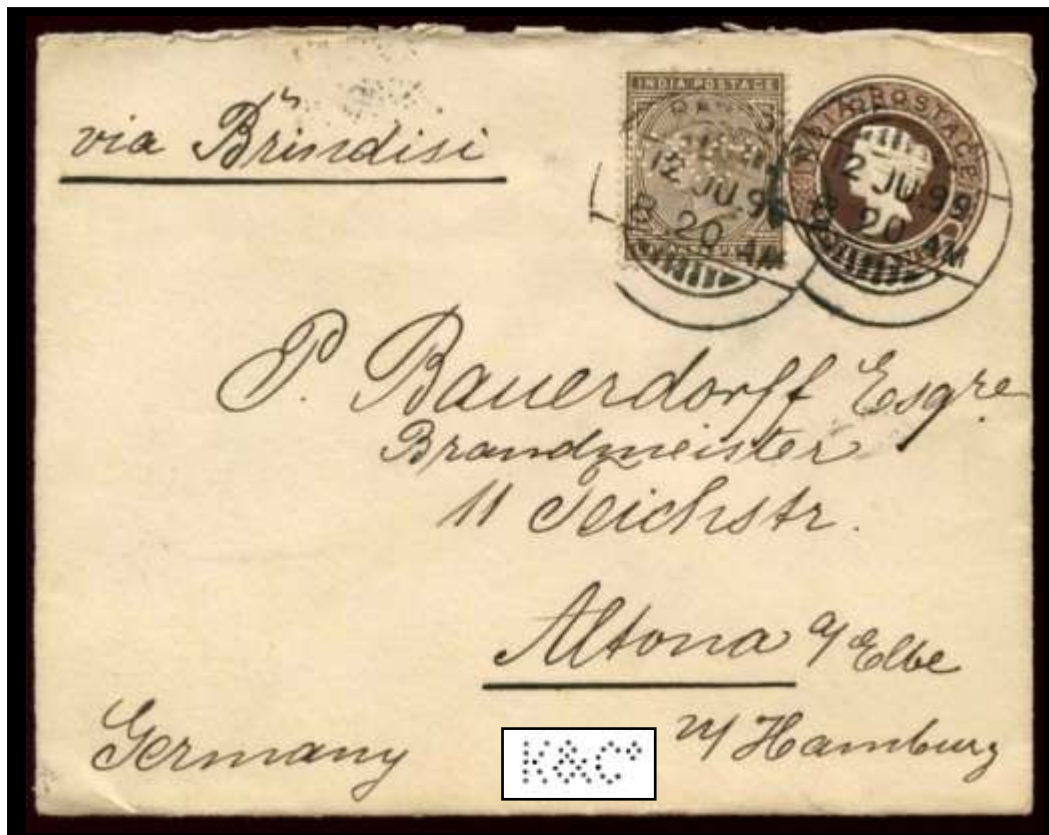 via Brindisi
INDIA POSTAGE
12 JU. 9
8 20 AM
INDIA POSTAGE
2 JU. 99
8 20 AM
P. Bauerdorff Esqre
Brandmeister
11 Teichstr.
Altona a/Elbe
n/ Hamburg
Germany
K&Co